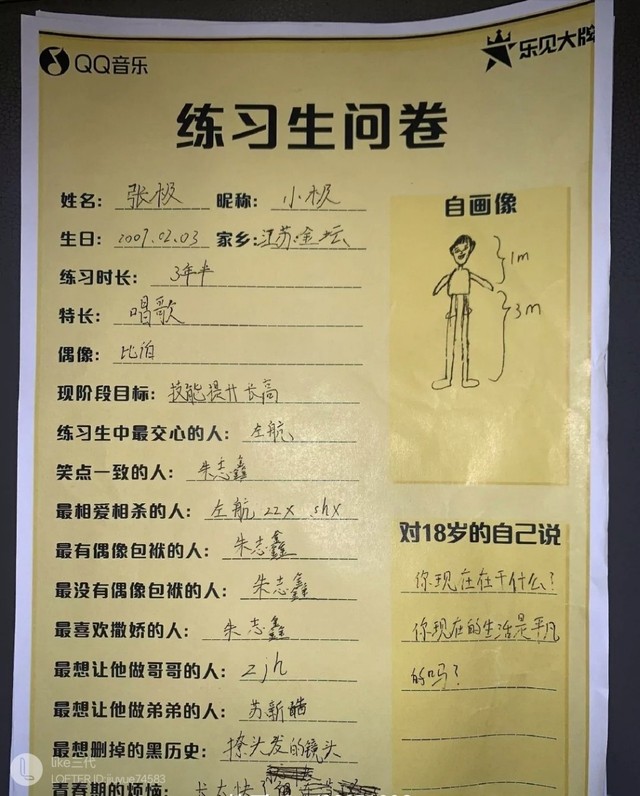 QQ音乐
乐见大牌
练习生问卷
姓名: 张极 昵称: 小极
生日: 2007.02.03 家乡: 江苏金坛
练习时长: 3年半
特长: 唱歌
偶像: 比泊
现阶段目标: 技能提升 长高
练习生中最交心的人: 左航
笑点一致的人: 朱志鑫
最相爱相杀的人: 左航 zzx shx
最有偶像包袱的人: 朱志鑫
最没有偶像包袱的人: 朱志鑫
最喜欢撒娇的人: 朱志鑫
最想让他做哥哥的人: zjh
最想让他做弟弟的人: 苏新皓
最想删掉的黑历史: 撩头发的镜头
青春期的烦恼:
自画像
1m
3m
对18岁的自己说
你现在在干什么?
你现在的生活是平凡
的吗?
like三代
LOFTER ID:jiuyue74583